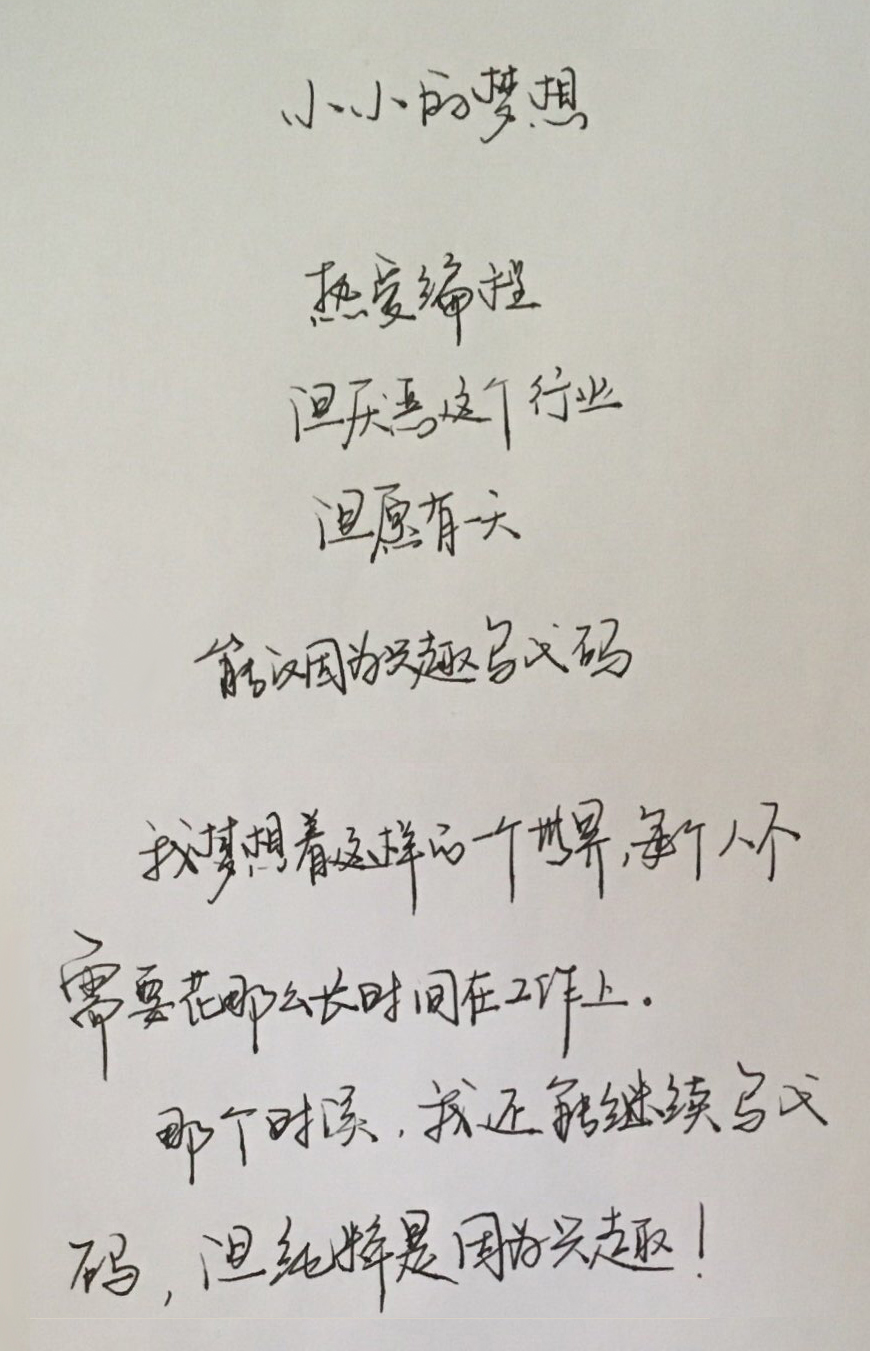 小小的梦想
热爱编程
但厌恶这个行业
但愿有一天
能仅因为兴趣写代码
我梦想着这样的一个世界,每个人不
需要花那么长时间在工作上.
那个时候,我还能继续写代
码,但纯粹是因为兴趣!